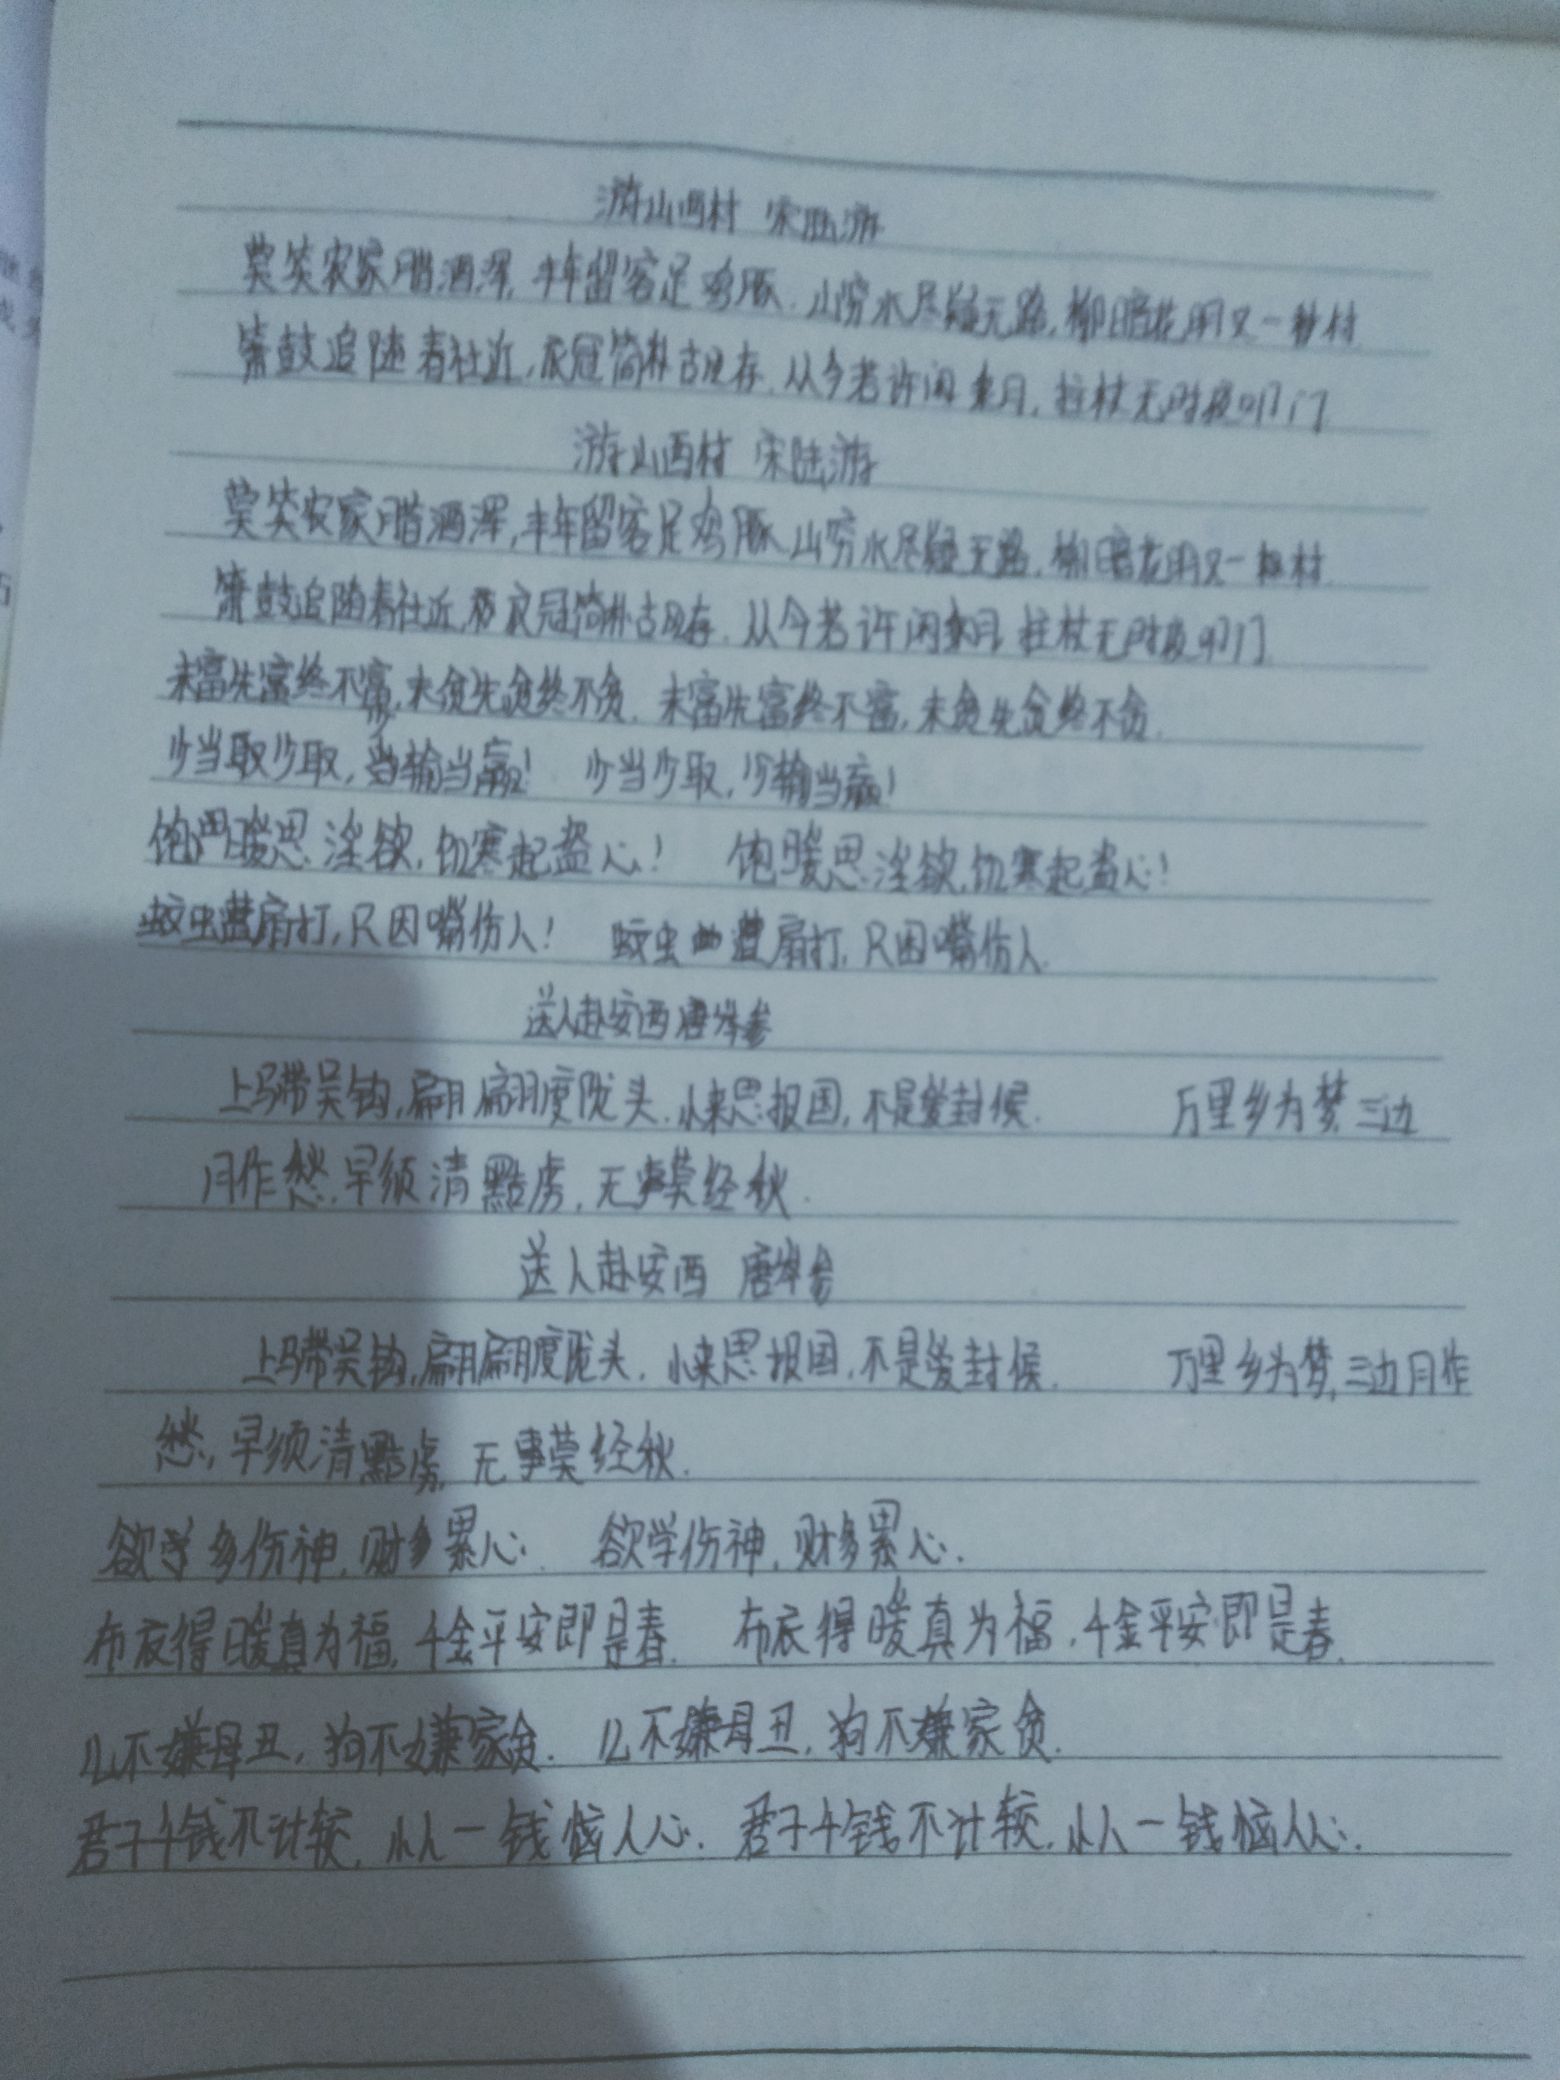 游山西村 宋陆游
莫笑农家腊酒浑,丰年留客足鸡豚.山穷水尽疑无路,柳暗花明又一村
箫鼓追随春社近,衣冠简朴古风存.从今若许闲乘月,拄杖无时夜叩门
游山西村 宋陆游
莫笑农家腊酒浑,丰年留客足鸡豚山穷水尽疑无路,柳暗花明又一村
箫鼓追随春社近,衣冠简朴古风存.从今若许闲乘月拄杖无时夜叩门
未富先富终不富,未贪先贪终不贪.未富先富终不富,未贪先贪终不贪.
少当取少取,当输当赢! 少当少取,少输当赢!
饱暖思淫欲,饥寒起盗心! 饱暖思淫欲,饥寒起盗心!
蚊虫遭扇打,只因嘴伤人! 蚊虫遭扇打,只因嘴伤人.
送人赴安西唐岑参
上马带吴钩,翩翩度陇头.小来思报国,不是爱封候. 万里乡为梦,三边
月作愁.早须清黠虏,无事莫经秋.
送人赴安西 唐岑参
上马带吴钩,翩翩度陇头.小来思报国,不是爱封候. 万里乡为梦,三边月作
愁,早须清黠虏,无事莫经秋.
欲学多伤神,财多累心. 欲学伤神,财多累心.
布衣得暖真为福,千金平安即是春. 布衣得暖真为福,千金平安即是春.
儿不嫌母丑,狗不嫌家贪. 儿不嫌母丑,狗不嫌家贪.
君子千钱不计较,小人一钱恼人心. 君子千钱不计较,小人一钱恼人心.